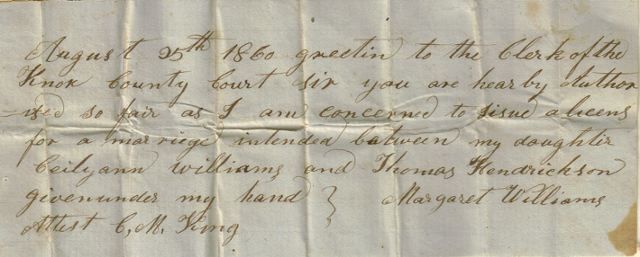 August 25th 1860 greetin to the Clerk of the
Knox County Court sir you are hearby Author
ised so fair as I am concerned to sisue a licens
for a marriege intended between my doughter
Ceilyann Williams and Thomas Hendrickson
givenunder my hand } Margaret Williams
Attest C. M. King